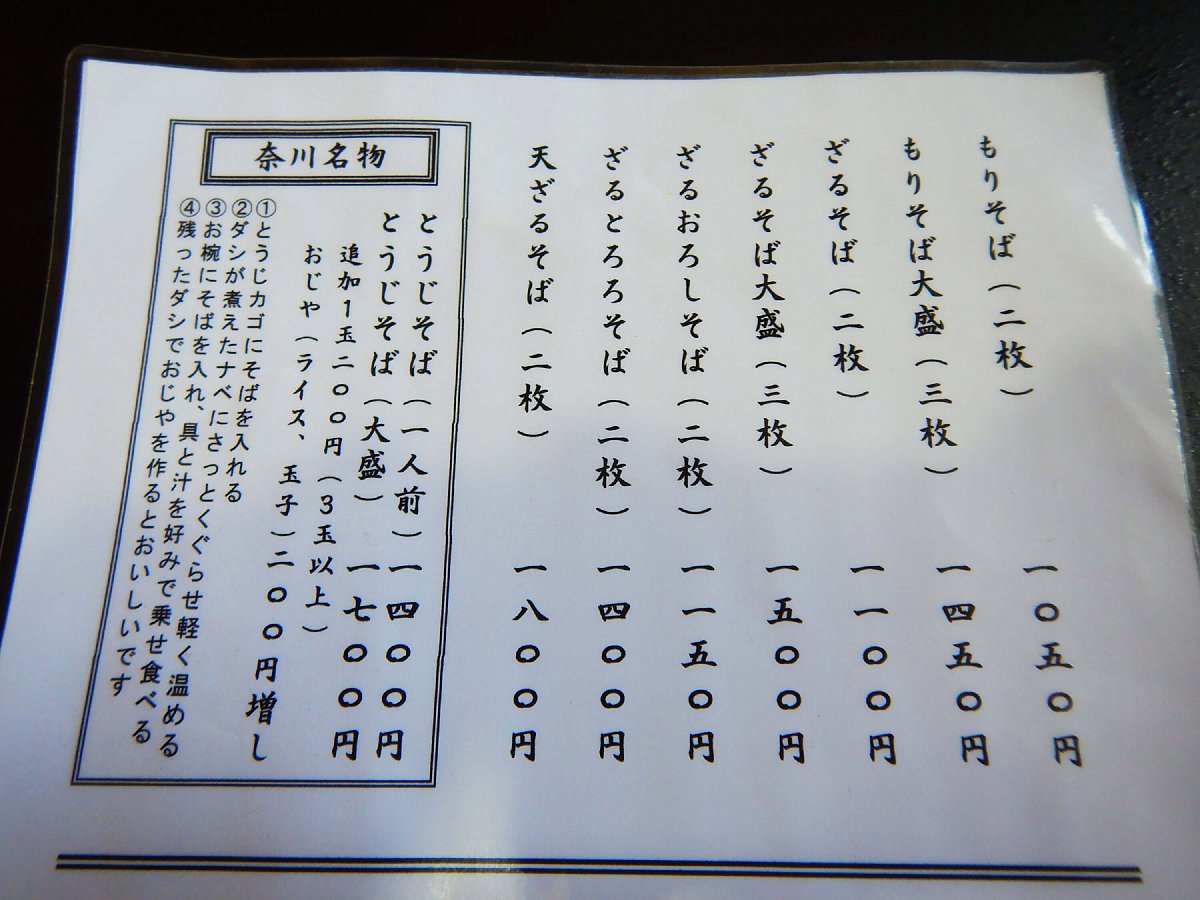 もりそば（二枚） 一〇五〇円
もりそば大盛（三枚） 一四五〇円
ざるそば（二枚） 一一〇〇円
ざるそば大盛（三枚） 一五〇〇円
ざるおろしそば（二枚） 一一五〇円
ざるとろろそば（二枚） 一四〇〇円
天ざるそば（二枚） 一八〇〇円
奈川名物
とうじそば（一人前） 一四〇〇円
とうじそば（大盛） 一七〇〇円
追加１玉二〇〇円（３玉以上）
おじや（ライス、玉子）二〇〇円増し
①とうじカゴにそばを入れる
②ダシが煮えたナベにさっとくぐらせ軽く温める
③お椀にそばを入れ、具と汁を好みで乗せ食べる
④残ったダシでおじやを作るとおいしいです